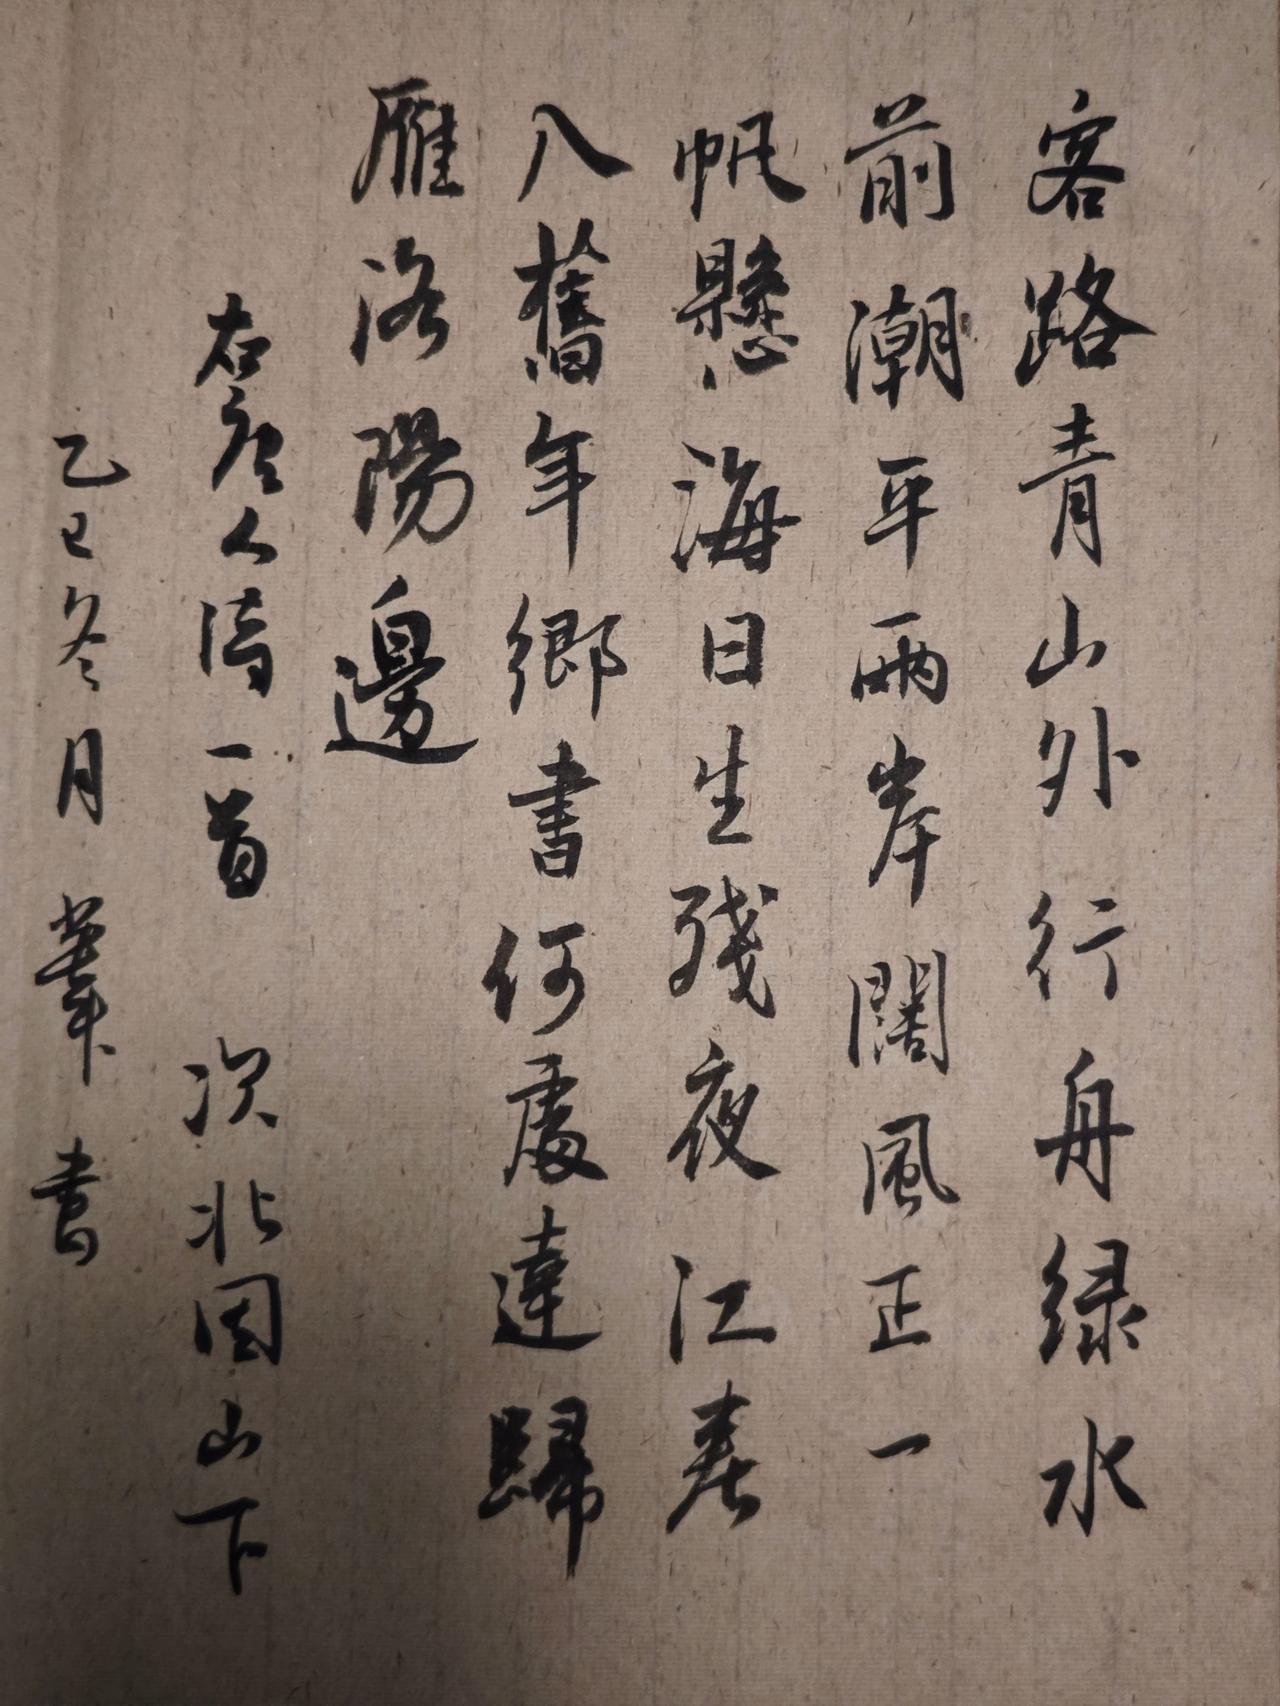 客路青山外行舟绿水
前潮平兩岸闊風正一
帆懸海日生残夜江春
入舊年鄉書何處達歸
雁洛陽邊
右唐人诗一首 次北固山下
乙巳冬月 書